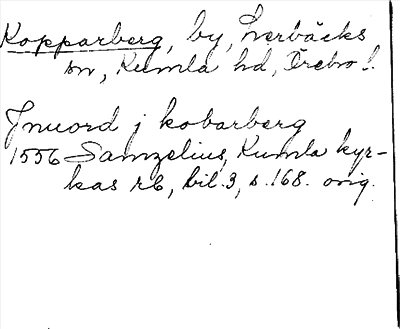 Kopparberg, by, Lerbäcks
sn, Kumla hd, Örebro l.
Jnuord j kobarberg
1556 Samzelius, Kumla kyr-
kas rb, bil. 3, s. 168. orig.